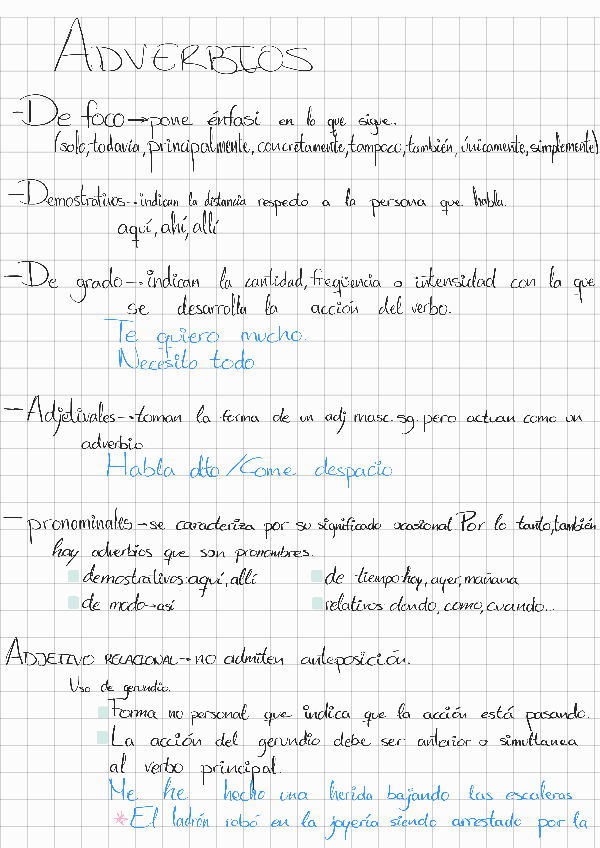 ADVERBIOS
-De foco→pone énfasi en lo que sigue.
(solo, todavía, principalmente, concretamente, tampoco, también, únicamente, simplemente)
-Demostrativos→indican la distancia respecto a la persona que habla.
aquí, ahí, allí
-De grado→indican la cantidad, freqüencia o intensidad con la que
se desarrolla la acción del verbo.
Te quiero mucho.
Necesito todo
-Adjetivales→toman la forma de un adj masc. sg. pero actuan como un
adverbio
Habla alto /Come despacio
-pronominales→se caracteriza por su significado ocasional Por lo tanto, también
hay adverbios que son pronombres.
demostrativos: aquí, allí
de tiempo: hoy, ayer, mañana
de modo→así
relativos dondo, como, cuando...
ADJETIVO RELACIONAL→no admiten anteposición.
Uso de gerundio.
Forma no personal que indica que la acción está pasando.
La acción del gerundio debe ser anterior o simultanea
al verbo principal.
Me he hecho una herida bajando las escaleras
*El ladrón robó en la joyería siendo arrestado por la